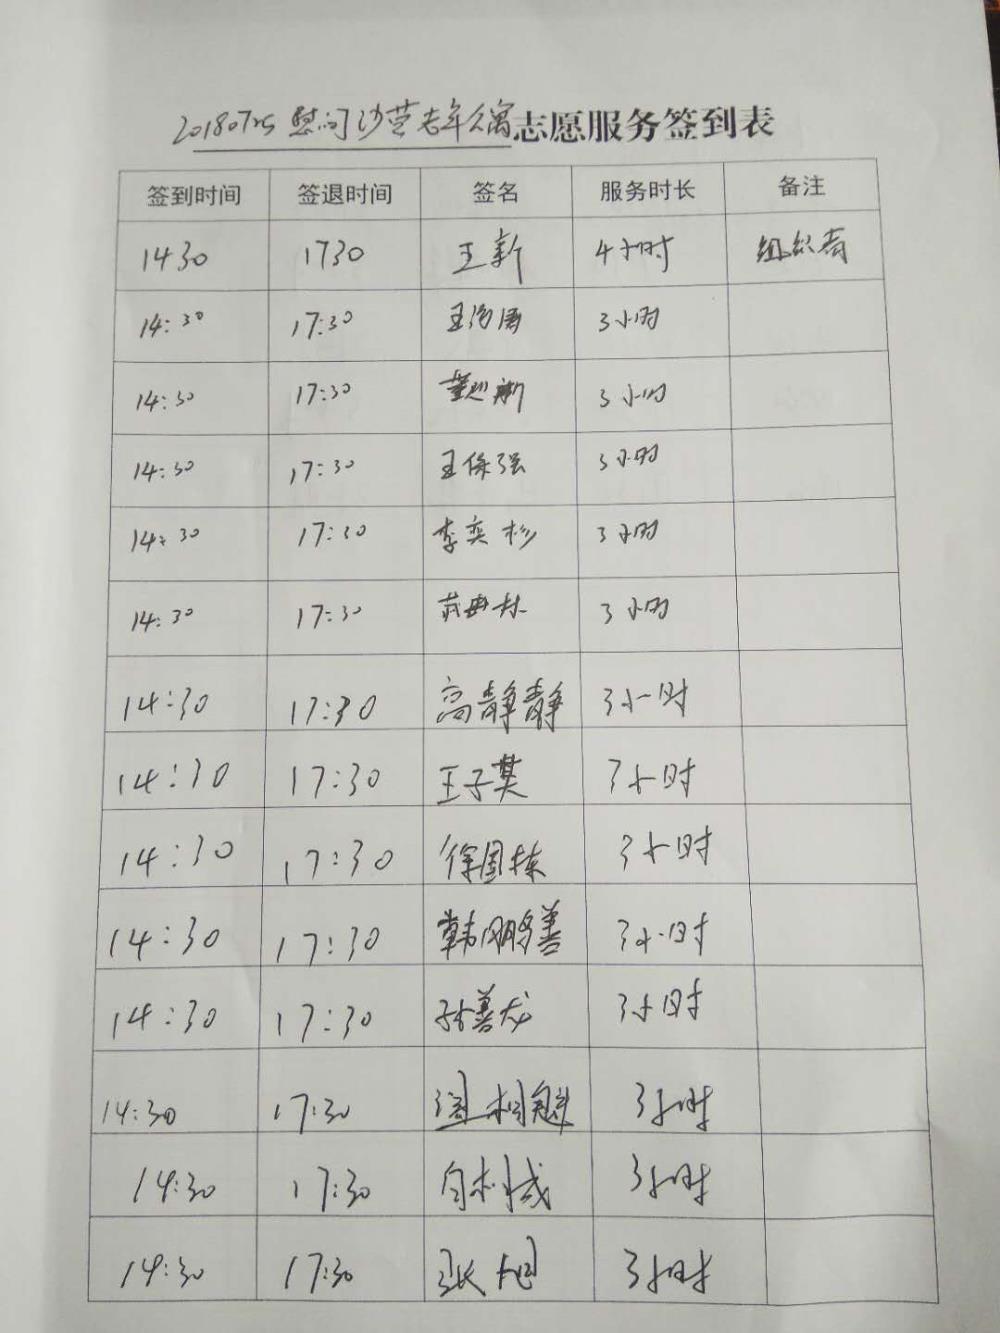 20180725 慰问沙营老年公寓志愿服务签到表
签到时间 签退时间 签名 服务时长 备注
1430 1730 王新 4小时 组织者
14:30 17:30 3小时
14:30 17:30 3小时
14:30 17:30 王保强 3小时
14:30 17:30 李奕杉 3小时
14:30 17:30 3小时
14:30 17:30 高静静 3小时
14:30 17:30 王子 3小时
14:30 17:30 徐国栋 3小时
14:30 17:30 韩 善 3小时
14:30 17:30 孙善龙 3小时
14:30 17:30 3小时
14:30 17:30 3小时
14:30 17:30 张旭 3小时